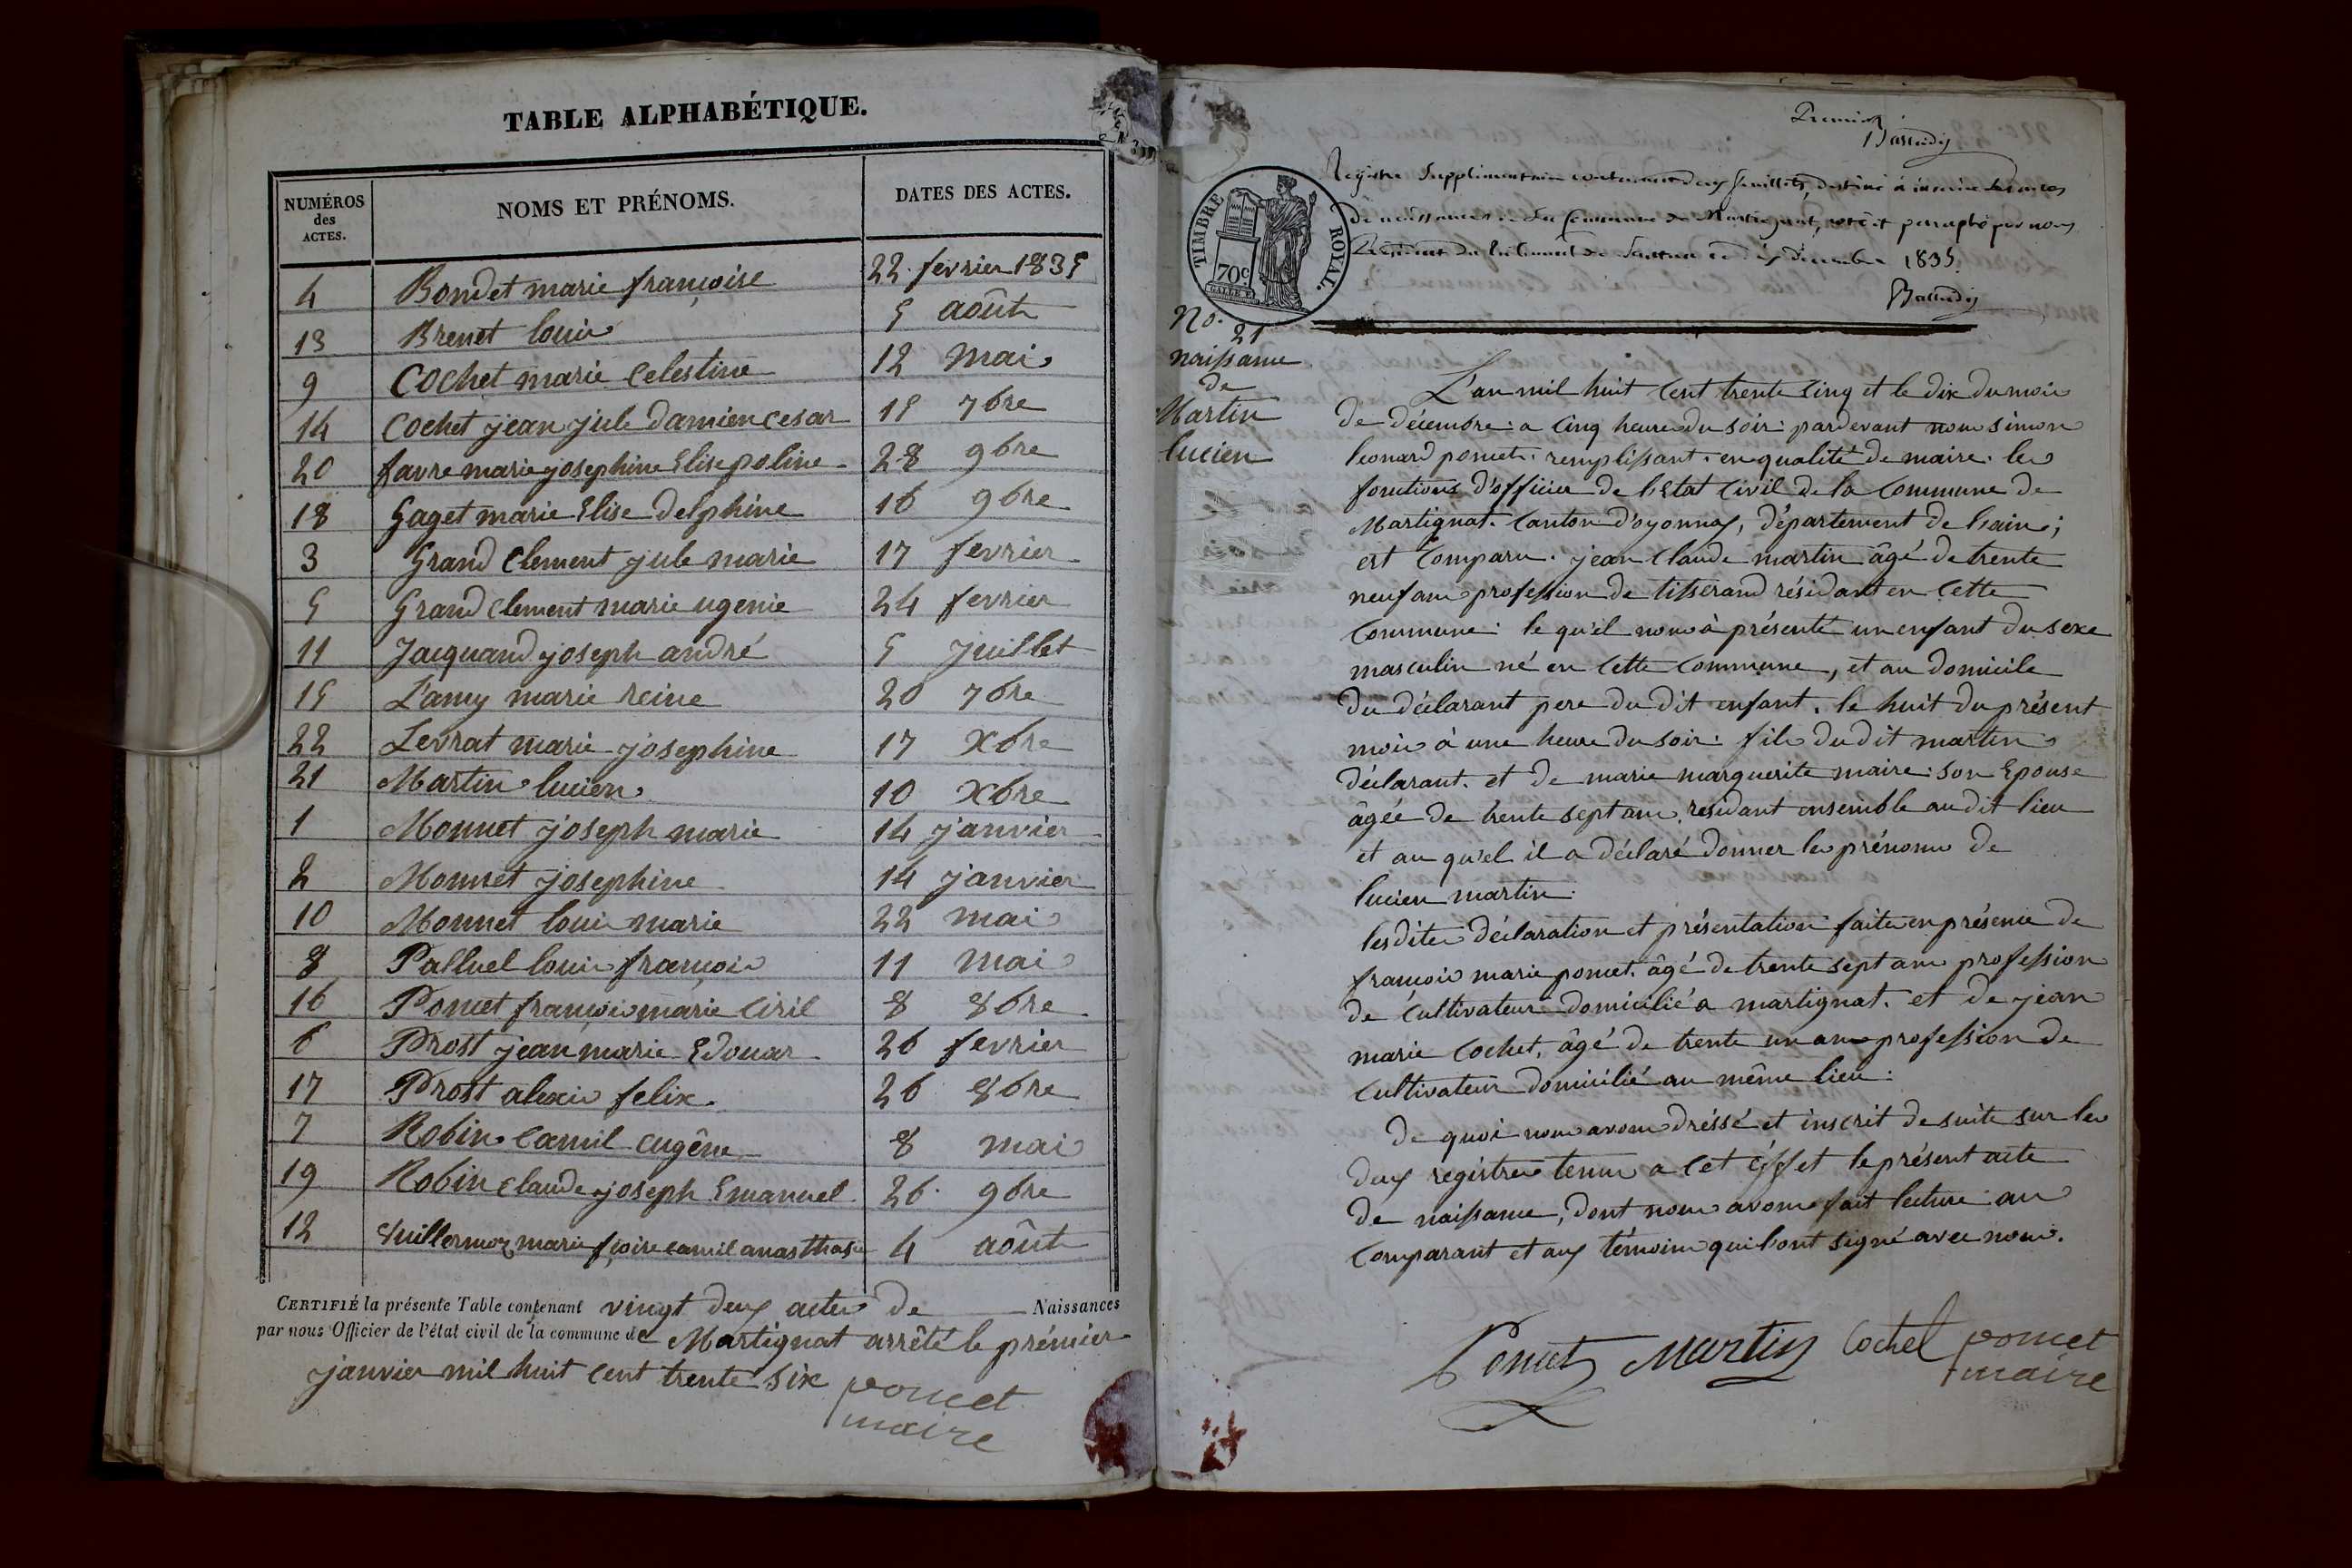 TABLE ALPHABÉTIQUE.
NUMÉROS des ACTES. NOMS ET PRÉNOMS. DATES DES ACTES.
4 Bondet marie françoise 22 fevrier 1835
13 Brenet louis 5 août
9 Cochet marie celestine 12 mai
14 Cochet jean jule damien cesar 15 7bre
20 favre marie josephine Elise poline 28 9bre
18 Gaget marie Elise delphine 16 9bre
3 Grand Clement jule marie 17 fevrier
5 Grand Clement marie ugenie 24 fevrier
11 Jacquand joseph andré 5 juillet
15 L'amy marie reine 20 7bre
22 Levrat marie josephine 17 Xbre
21 Martin lucien 10 Xbre
1 Monnet joseph marie 14 janvier
2 Monnet josephine 14 janvier
10 Monnet louis marie 22 mai
8 Palluel louis françois 11 mai
16 Poncet françois marie Ciril 8 8bre
6 Prost jean marie Edouar 26 fevrier
17 Prost alexis felix. 26 8bre
7 Robin camil eugêne 8 mai
19 Robin claude joseph Emanuel 26 9bre
12 Vuillermoz marie fçoise camil anasthasie 4 août
CERTIFIÉ la présente Table contenant vingt deux actes de Naissances
par nous Officier de l'état civil de la commune de Martignat arrêté le prémier
janvier mil huit cent trente six
poncet
maire
Premier
TIMBRE ROYAL.
70c
Registre Supplimentaire contenant deux feuillets, destiné à inscrire les actes
de naissances de la Commune de Martignat, coté et paraphé par nous
Président du Tribunal de Nantua ce dix décembre 1835.
No. 21
naissance
de
Martin
lucien
L'an mil huit cent trente cinq et le dix du mois
de décembre: a cinq heure du soir: pardevant nous simon
leonard poncet: remplissant. en qualité de maire. les
fonctions d'officier de l'Etat Civil de la Commune de
Martignat. Canton d'oyonnax, département de l'ain;
est comparu. jean Claude martin âgé de trente
neuf ans profession de tisserand résidant en cette
Commune: le qu'el nous à présenté un enfant du sexe
masculin né en cette commune, et au domicile
du déclarant pere du dit enfant. le huit du présent
mois à une heure du soir: fils du dit martin
déclarant. et de marie marguerite maire: son Epouse
âgée de trente sept ans, residant ensemble au dit lieu
et au qu'el il a déclaré donner les prénoms de
lucien martin:
les dites déclaration et présentation faites en présence de
françois marie poncet. âgé de trente sept ans profession
de Cultivateur domicilié a martignat. et de jean
marie Cochet, âgé de trente un ans profession de
cultivateur domicilié au même lieu:
de quoi nous avons dréssé et inscrit de suite sur les
deux registres tenus a cet éffet le présent acte
de naissance, dont nous avons fait lecture: au
comparant et aux témoins qui l'ont signé avec nous.
Poncet Martin Cochet poncet
maire